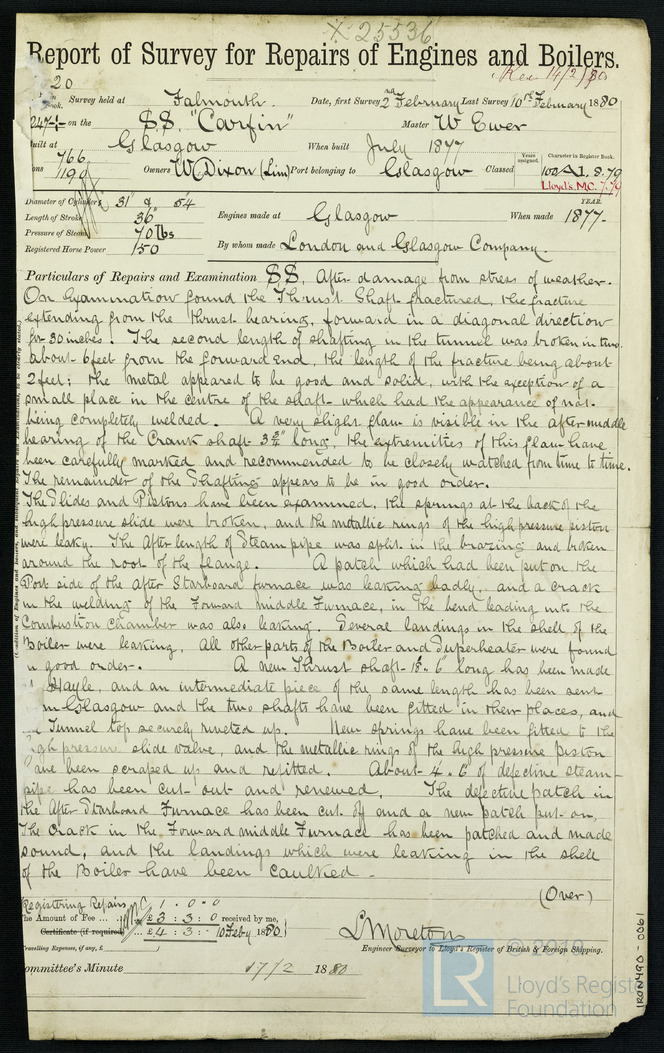 X 25536
Report of Survey for Repairs of Engines and Boilers.
Rec 14/2/80
20
Survey held at Falmouth. Date, first Survey 2nd February Last Survey 10th February 1880
247 on the SS. "Carfin" Master W Ewer
Built at Glasgow When built July 1877
Tons 766 1190 Owners W Dixon (Lim) Port belonging to Glasgow Classed
Years assigned. Character in Register Book.
100 A1. 8.79
Lloyd's M.C. 7.79
YEAR.
Diameter of Cylinders 31" & 54
Length of Stroke 36"
Pressure of Steam 70 lbs
Registered Horse Power 150
Engines made at Glasgow When made 1877-
By whom made London and Glasgow Company.
Particulars of Repairs and Examination SS, After damage from stress of weather.
On Examination found the Thrust Shaft fractured, the fracture
extending from the thrust bearing, forward in a diagonal direction
for 30 inches. The second length of shafting in the tunnel was broken in two
about 6 feet from the forward end, the length of the fracture being about
2 feet; the metal appeared to be good and solid, with the exception of a
small place in the centre of the shaft which had the appearance of not
being completely welded. A very slight flaw is visible in the after middle
bearing of the Crank shaft 3¾" long, the extremities of this flaw have
been carefully marked and recommended to be closely watched from time to time.
The remainder of the Shafting appears to be in good order.
The Slides and Pistons have been examined, the springs at the back of the
high pressure slide were broken, and the metallic rings of the high pressure piston
were leaky. The After length of Steam pipe was split in the brazing and broken
around the root of the flange. A patch which had been put on the
Port side of the After Starboard furnace was leaking badly, and a crack
in the welding of the Forward middle Furnace, in the bend leading into the
Combustion Chamber was also leaking. Several landings in the shell of the
Boiler were leaking. All other parts of the Boiler and Superheater were found
in good order. A new Thrust shaft 18'. 6" long has been made
Hayle, and an intermediate piece of the same length has been sent
from Glasgow and the two shafts have been fitted in their places, and
Tunnel top securely riveted up. New springs have been fitted to the
high pressure slide valve, and the metallic rings of the high pressure Piston
have been scraped up and refitted. About 4. 6" of defective steam-
pipe has been cut out and renewed. The defective patch in
the After Starboard Furnace has been cut off and a new patch put on,
The crack in the Forward middle Furnace has been patched and made
sound, and the landings which were leaking in the shell
of the Boiler have been caulked -
(Over)
Registering Repairs 1 . 0 . 0
The Amount of Fee ... £ 3 : 3 : 0 received by me,
Certificate (if required) ... £ 4 : 3 : 10 Feby 1880
Travelling Expenses, if any, £
L Moreton
Engineer Surveyor to Lloyd's Register of British & Foreign Shipping.
Committee's Minute 17/2 1880
IRON490-0061
Lloyd's Register
Foundation